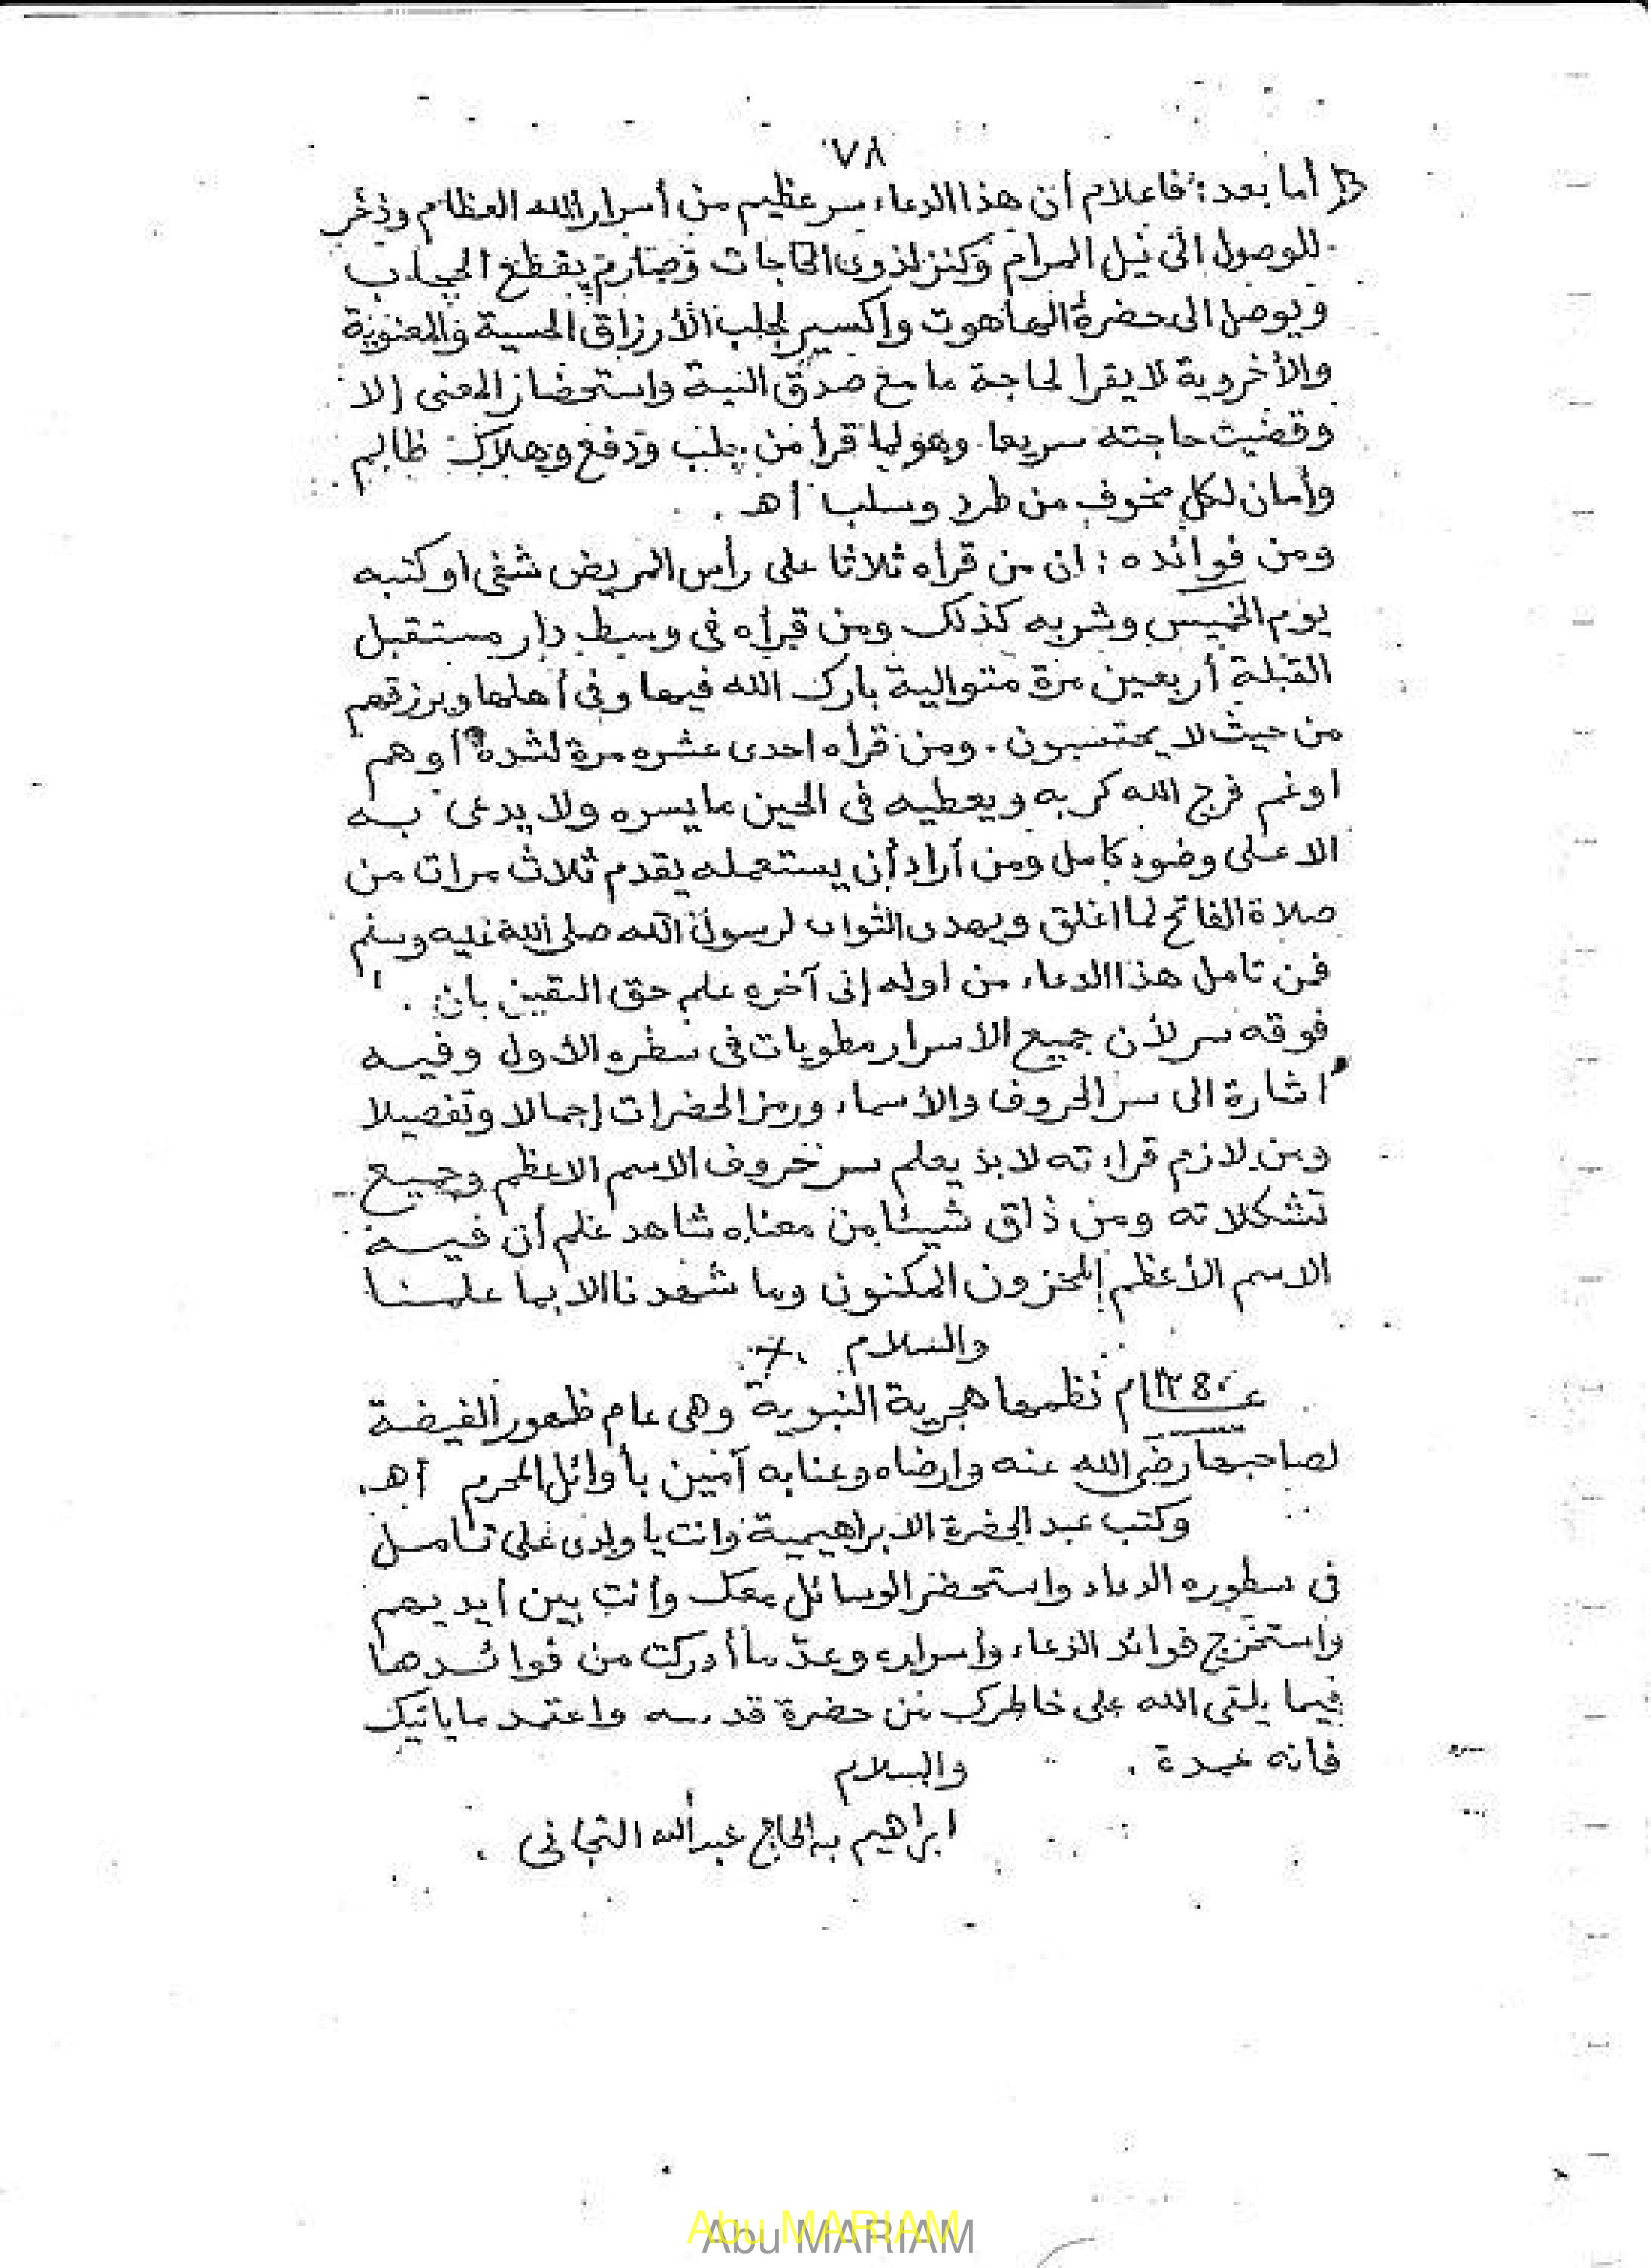 ٧٨
أما بعد : فاعلام أن هذا الدعاء سر عظيم من أسرار الله العظام وذخر
للوصول الى نيل المرام وكنز لذوى الحاجات وصارم يقطع الحجاب
ويوصل الى حضرة الهاهوت وإكسير لجلب الأرزاق الحسية والمعنوية
والأخروية لا يقرأ لحاجة ما مع صدق النية واستحضار المعنى إلا
وقضيت حاجته سريعا وهو لما قرأ من جلب ودفع وهلاك ظالم
وأمان لكل مخوف من طرد وسلب اهـ .
ومن فوائده : ان من قرأه ثلاثا على رأس المريض شفى او كتبه
يوم الخميس وشربه كذلك ومن قرأه فى وسط دار مستقبل
القبلة أربعين مرة متوالية بارك الله فيها وفى أهلها ويرزقهم
من حيث لا يحتسبون . ومن قرأه احدى عشره مرة لشدة أو هم
اوغم فرج الله كربه ويعطيه فى الحين ما يسره ولا يدعى به
الا على وضوء كامل ومن أراد أن يستعمله يقدم ثلاث مرات من
صلاة الفاتح لما اغلق ويهدى الثواب لرسول الله صلى الله عليه وسلم
فمن تامل هذا الدعاء من اوله إلى آخره علم حق اليقين بان .
فوقه سر لأن جميع الأسرار مطويات فى سطره الأول وفيه
اشارة الى سر الحروف والأسماء ورمز الحضرات إجمالا وتفصيلا
ومن لازم قراءته لا بد يعلم سر حروف الاسم الاعظم وجميع
تشكلاته ومن ذاق شيئا من معناه شاهد علم أن فيه
الاسم الأعظم المخزون المكنون وما شهدنا الا بما علمنا
والسلام
عام نظمها هجرية النبوية وهى عام ظهور الفيضة
لصاحبها رضى الله عنه وارضاه وعنا به آمين بأوائل المحرم اهـ.
وكتب عبد الحضرة الابراهيمية وانت يا ولدى على تامل
فى سطوره الدعاء واستحضر الوسائل معك وأنت بين ايديهم
واستخرج فوائد الدعاء وأسراره وعد ما أدركت من فوائدها
فيما يلقى الله على خاطرك من حضرة قدسه واعتمد ما ياتيك
فانه عمدة .
والسلام
ابراهيم بن الحاج عبد الله التجانى .
Abu MARIAM